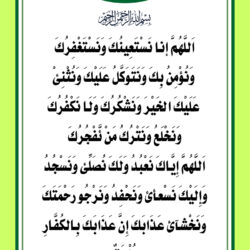 بسم الله الرحمن الرحيم
اَللّٰهُمَّ اِنَّا نَسْتَعِينُكَ وَنَسْتَغْفِرُكَ
وَنُؤْمِنُ بِكَ وَنَتَوَكَّلُ عَلَيْكَ وَنُثْنِيْ
عَلَيْكَ الْخَيْرَ وَنَشْكُرُكَ وَلَا نَكْفُرُكَ
وَنَخْلَعُ وَنَتْرُكُ مَنْ يَّفْجُرُكَ
اَللّٰهُمَّ اِيَّاكَ نَعْبُدُ وَلَكَ نُصَلِّيْ وَنَسْجُدُ
وَاِلَيْكَ نَسْعٰى وَنَحْفِدُ وَنَرْجُو رَحْمَتَكَ
وَنَخْشٰى عَذَابَكَ اِنَّ عَذَابَكَ بِالْكُفَّارِ